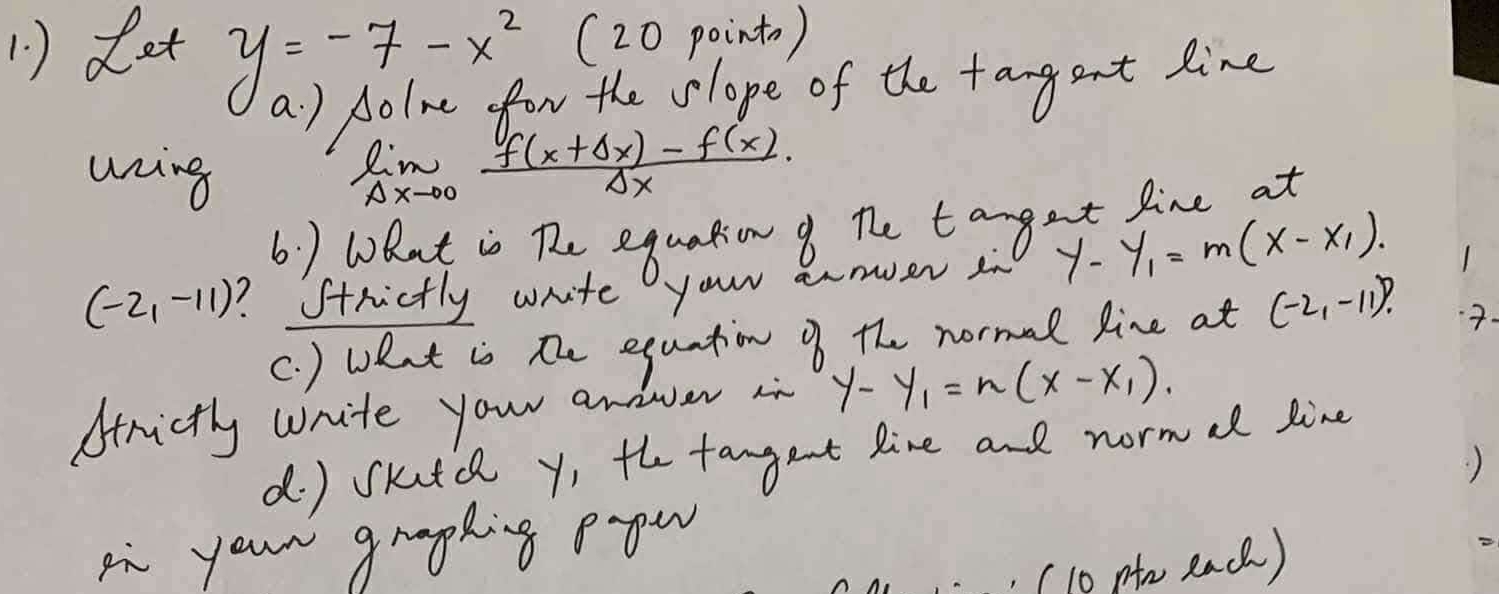 1.) Let y = -7 - x² (20 points)
a.) Solve for the slope of the tangent line
using lim Δx→0 f(x+Δx) - f(x) / Δx.
b.) What is the equation of the tangent line at
(-2, -11)? Strictly write your answer in y - y₁ = m(x - x₁).
c.) What is the equation of the normal line at (-2, -11)?
Strictly write your answer in y - y₁ = n(x - x₁).
d.) Sketch y, the tangent line and normal line
in your graphing paper
(10 pts each)